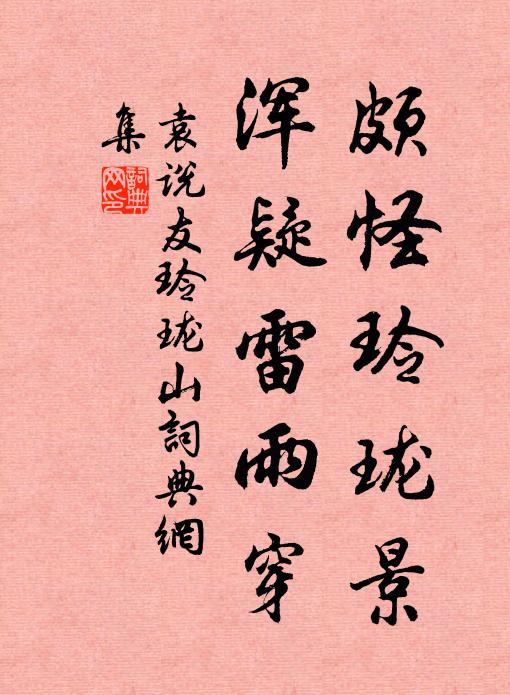 颇怪玲珑景
浑疑雷雨穿
袁说友玲珑山詞典網
集
詞典网印